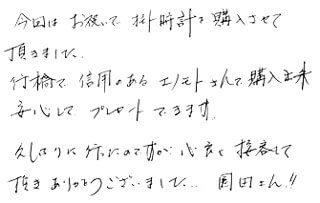 今回は お祝いで 掛時計を購入させて
頂きました.
行橋で 信用のある エノモトさんで購入出来
安心して プレゼント できます.
久しぶりに 行ったのですが 心良く 接客して
頂き ありがとうございました... 岡田さん!!